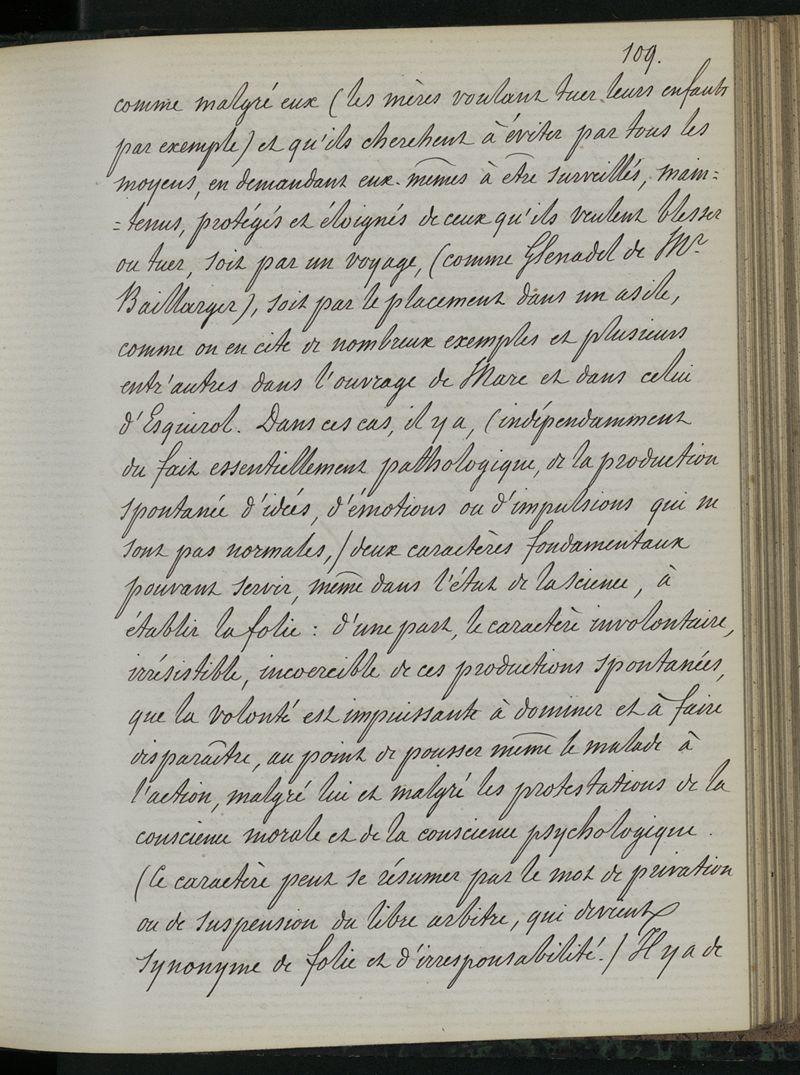 109.
comme malgré eux (les mères voulant tuer leurs enfants
par exemple) et qu'ils cherchent à éviter par tous les
moyens, en demandant eux-mêmes à être surveillés, main=
=tenus, protégés et éloignés de ceux qu'ils veulent blesser
ou tuer, soit par un voyage, (comme Glenadel de Mr
Baillarger), soit par le placement dans un asile,
comme on en cite de nombreux exemples et plusieurs
entr'autres dans l'ouvrage de Marc et dans celui
d'Esquirol. Dans ces cas, il y a, (indépendamment
du fait essentiellement pathologique, de la production
spontanée d'idées, d'émotions ou d'impulsions qui ne
sont pas normales,) deux caractères fondamentaux
pouvant servir, même dans l'état de la science, à
établir la folie : d'une part, le caractère involontaire,
irrésistible, incoercible de ces productions spontanées,
que la volonté est impuissante à dominer et à faire
disparaître, au point de pousser même le malade à
l'action, malgré lui et malgré les protestations de la
conscience morale et de la conscience psychologique.
(Ce caractère peut se résumer par le mot de privation
ou de suspension du libre arbitre, qui devient
synonyme de folie et d'irresponsabilité.) Il y a de